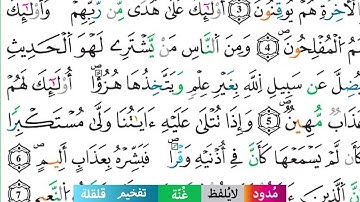 الَاخِرَةِ هُمْ يُوقِنُونَ 3 أُوْلَٰٓئِكَ عَلَىٰ هُدٗى مِّن رَّبِّهِمْ وَأُوْلَٰٓئِكَ
هُمُ الْمُفْلِحُونَ 4 وَمِنَ النَّاسِ مَنْ يَّشْتَرِے لَهْوَ الْحَدِيثِ
لِيُضِلَّ عَن سَبِيلِ اللَّهِ بِغَيْرِ عِلْمٖ وَيَتَّخِذُهَا هُزُؤًا أُوْلَٰٓئِكَ لَهُمْ
عَذَابٞ مُّهِينٞ 5 وَإِذَا تُتْلَىٰ عَلَيْهِ ءَايَٰتُنَا وَلَّىٰ مُسْتَكْبِرٗا
كَأَن لَّمْ يَسْمَعْهَا كَأَنَّ فِے أُذْنَيْهِ وَقْرٗا فَبَشِّرْهُ بِعَذَابٍ اَلِيمٍ 6
مُدُود لايُلفظ غُنّة تفخيم قلقلة